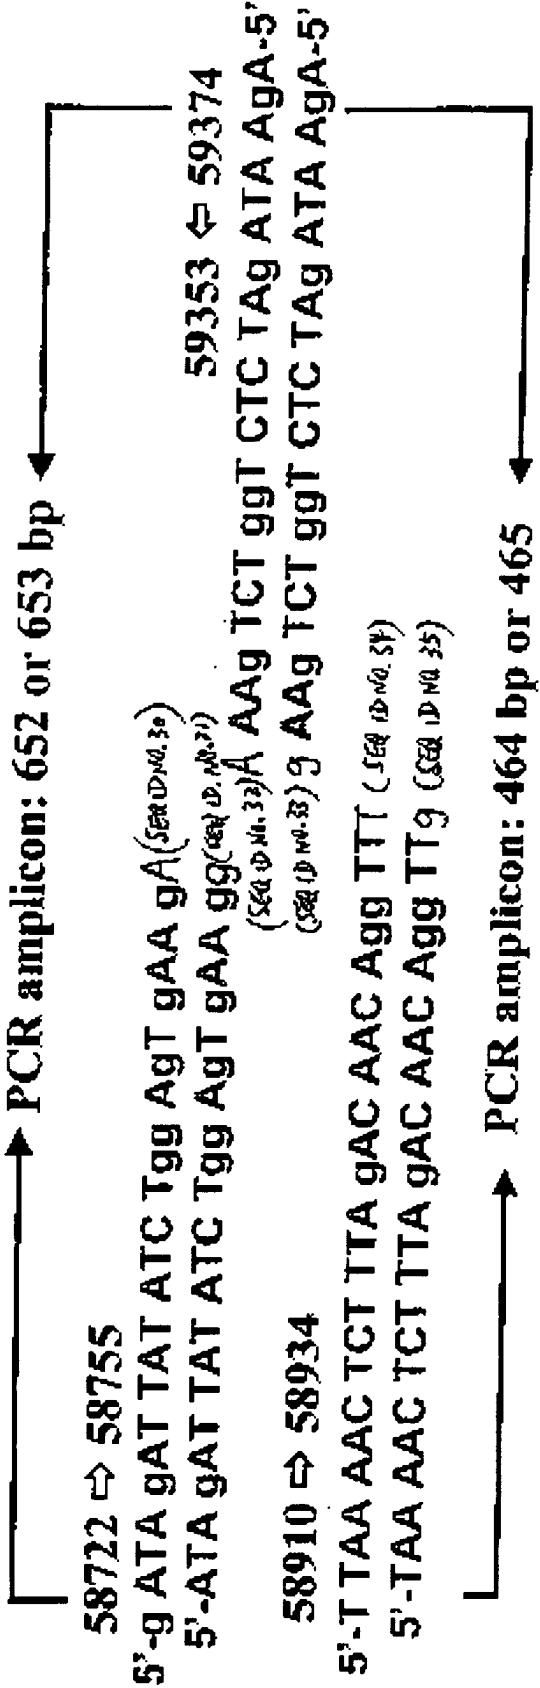 PCR amplicon: 652 or 653 bp
58722 ⇨ 58755
5'-g ATA gAT TAT ATC Tgg AgT gAA gA (SEQ ID NO. 30)
5'-ATA gAT TAT ATC Tgg AgT gAA gg (SEQ ID. NO. 31)
59353 ⇦ 59374
(SEQ ID NO. 32) A AAg TCT ggT CTC TAg ATA AgA-5'
(SEQ ID NO. 33) g AAg TCT ggT CTC TAg ATA AgA-5'
58910 ⇨ 58934
5'-T TAA AAC TCT TTA gAC AAC Agg TTT (SEQ ID NO. 34)
5'-TAA AAC TCT TTA gAC AAC Agg TTg (SEQ ID NO. 35)
PCR amplicon: 464 bp or 465